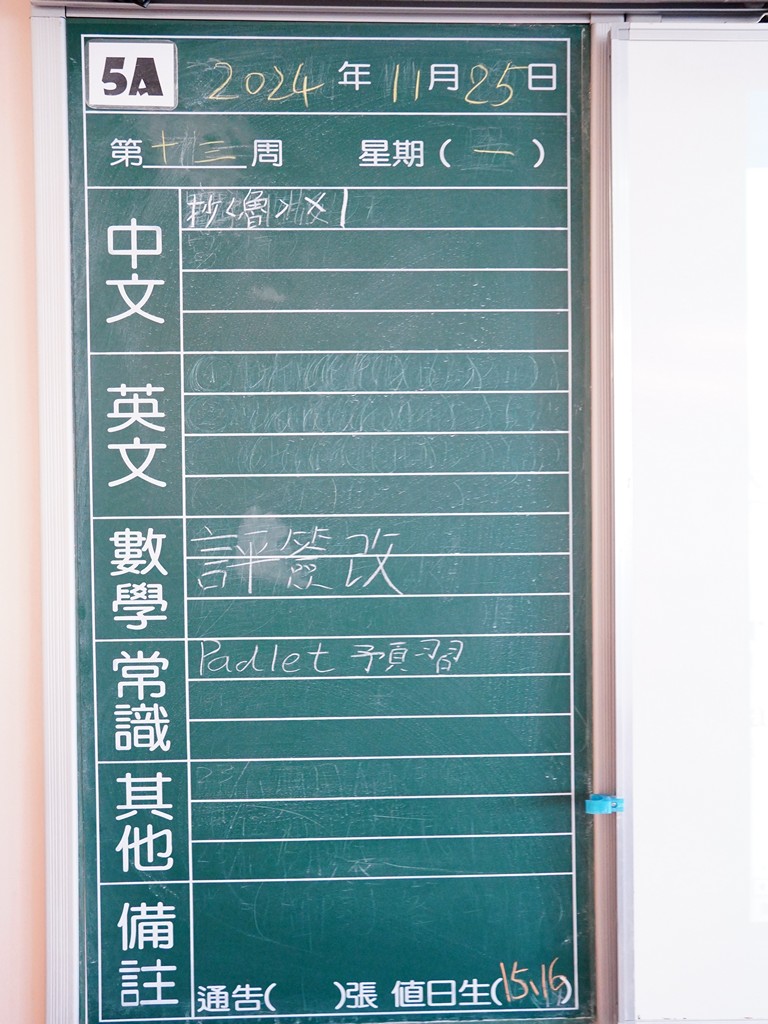 5A 2024年11月25日
第十三周 星期(一)
中文
抄<魯>×1
英文
數學
評簽改
常識
Padlet 預習
其他
備註
通告( )張 值日生(15、16)